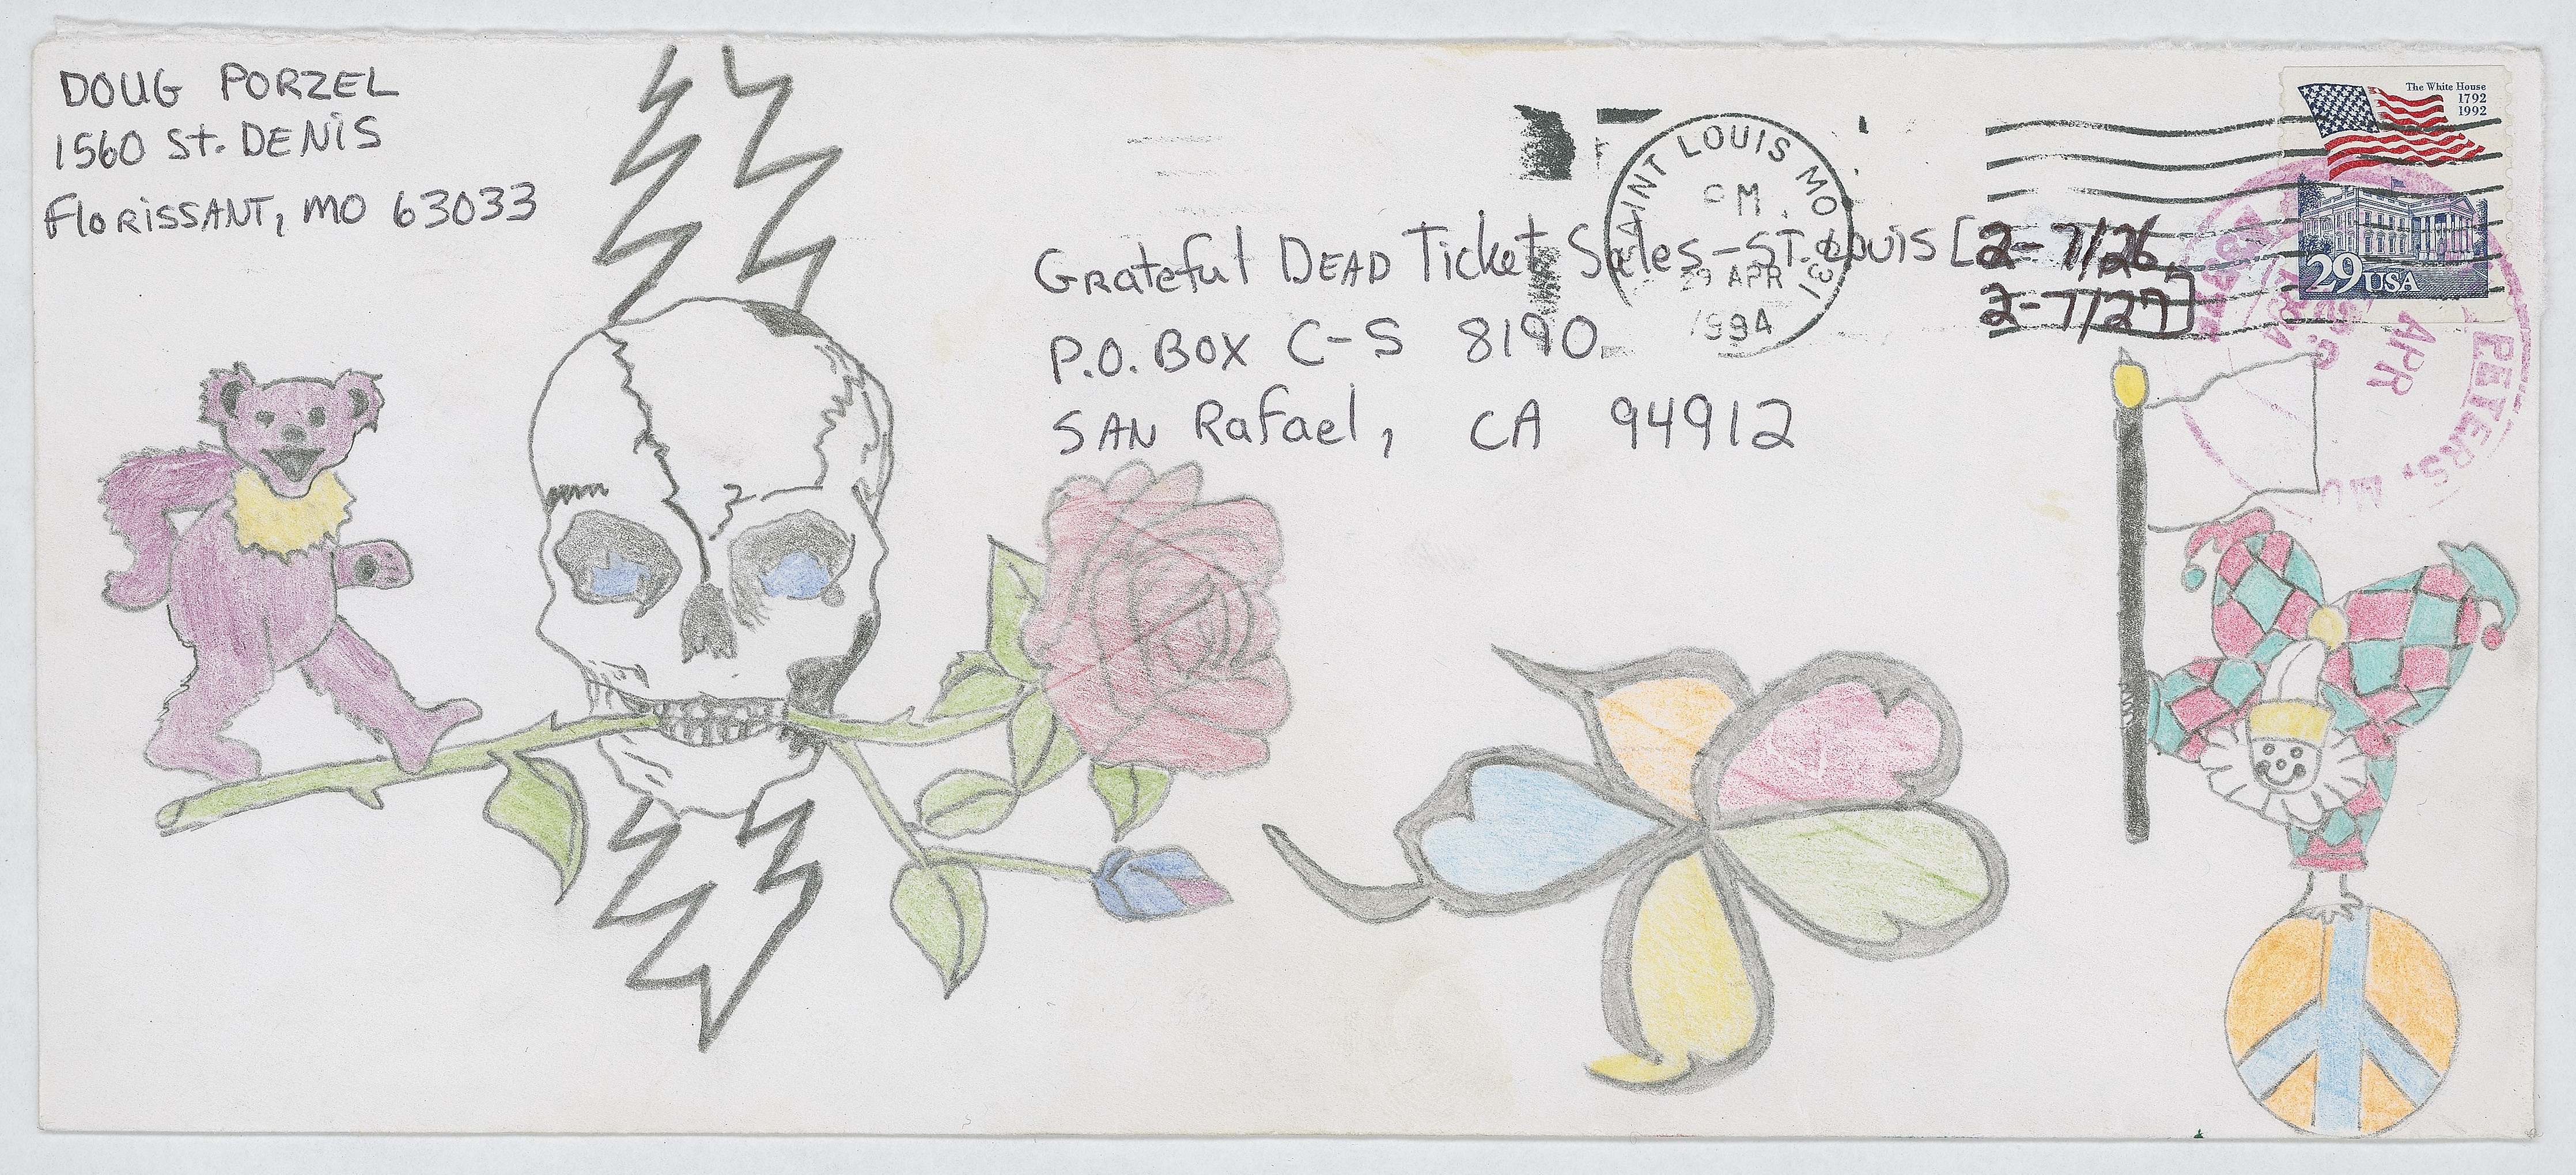 DOUG PORZEL
1560 St. DENIS
Florissant, MO 63033
Grateful DEAD Ticket Sales - ST. LOUIS [2-7/26,
2-7/27]
P.O. BOX C-S 8190
SAN Rafael, CA 94912
SAINT LOUIS MO 631
PM
29 APR
1994
The White House
1792
1992
29 USA
PETERS, MO
APR